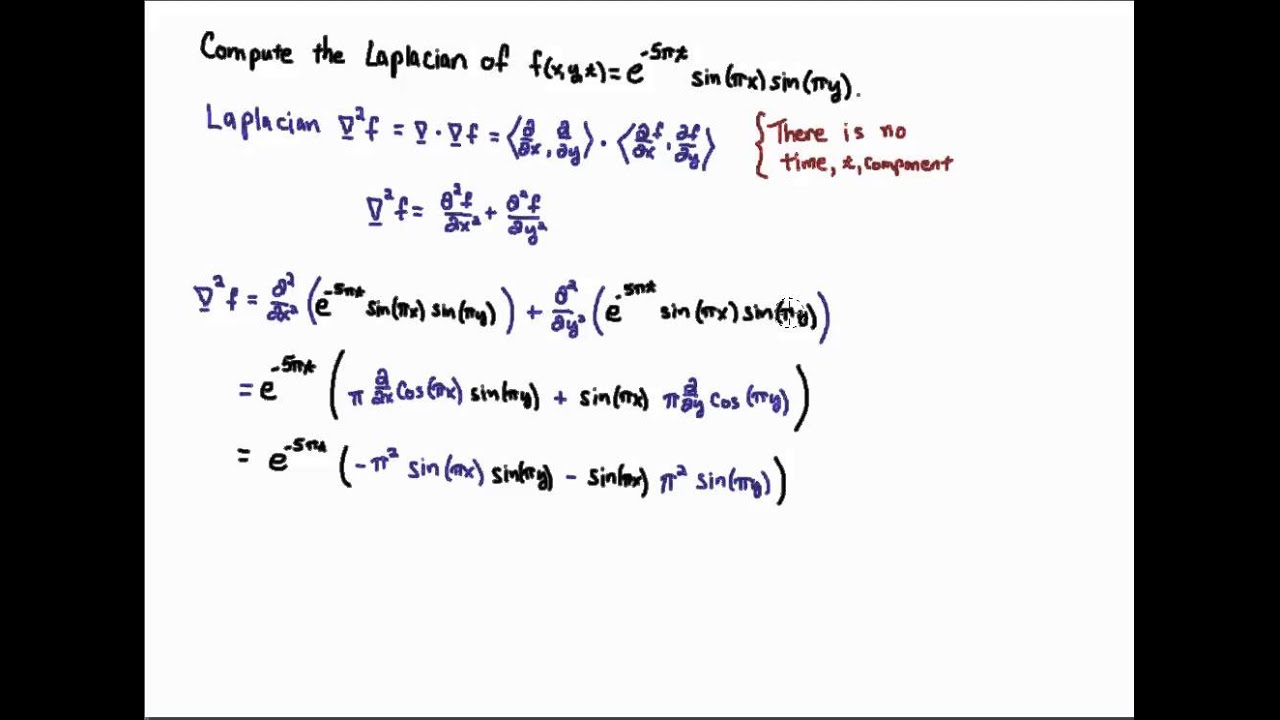 Compute the Laplacian of f(x,y,t)=e^{-5πt} sin(πx)sin(πy).
Laplacian ∇²f = ∇·∇f = ⟨∂/∂x, ∂/∂y⟩ · ⟨∂f/∂x, ∂f/∂y⟩ {There is no
time, t, component
∇²f = ∂²f/∂x² + ∂²f/∂y²
∇²f = ∂²/∂x² (e^{-5πt} sin(πx) sin(πy)) + ∂²/∂y² (e^{-5πt} sin(πx) sin(πy))
= e^{-5πt} (π ∂/∂x cos(πx) sin(πy) + sin(πx) π ∂/∂y cos(πy))
= e^{-5πt} (-π² sin(πx) sin(πy) - sin(πx) π² sin(πy))